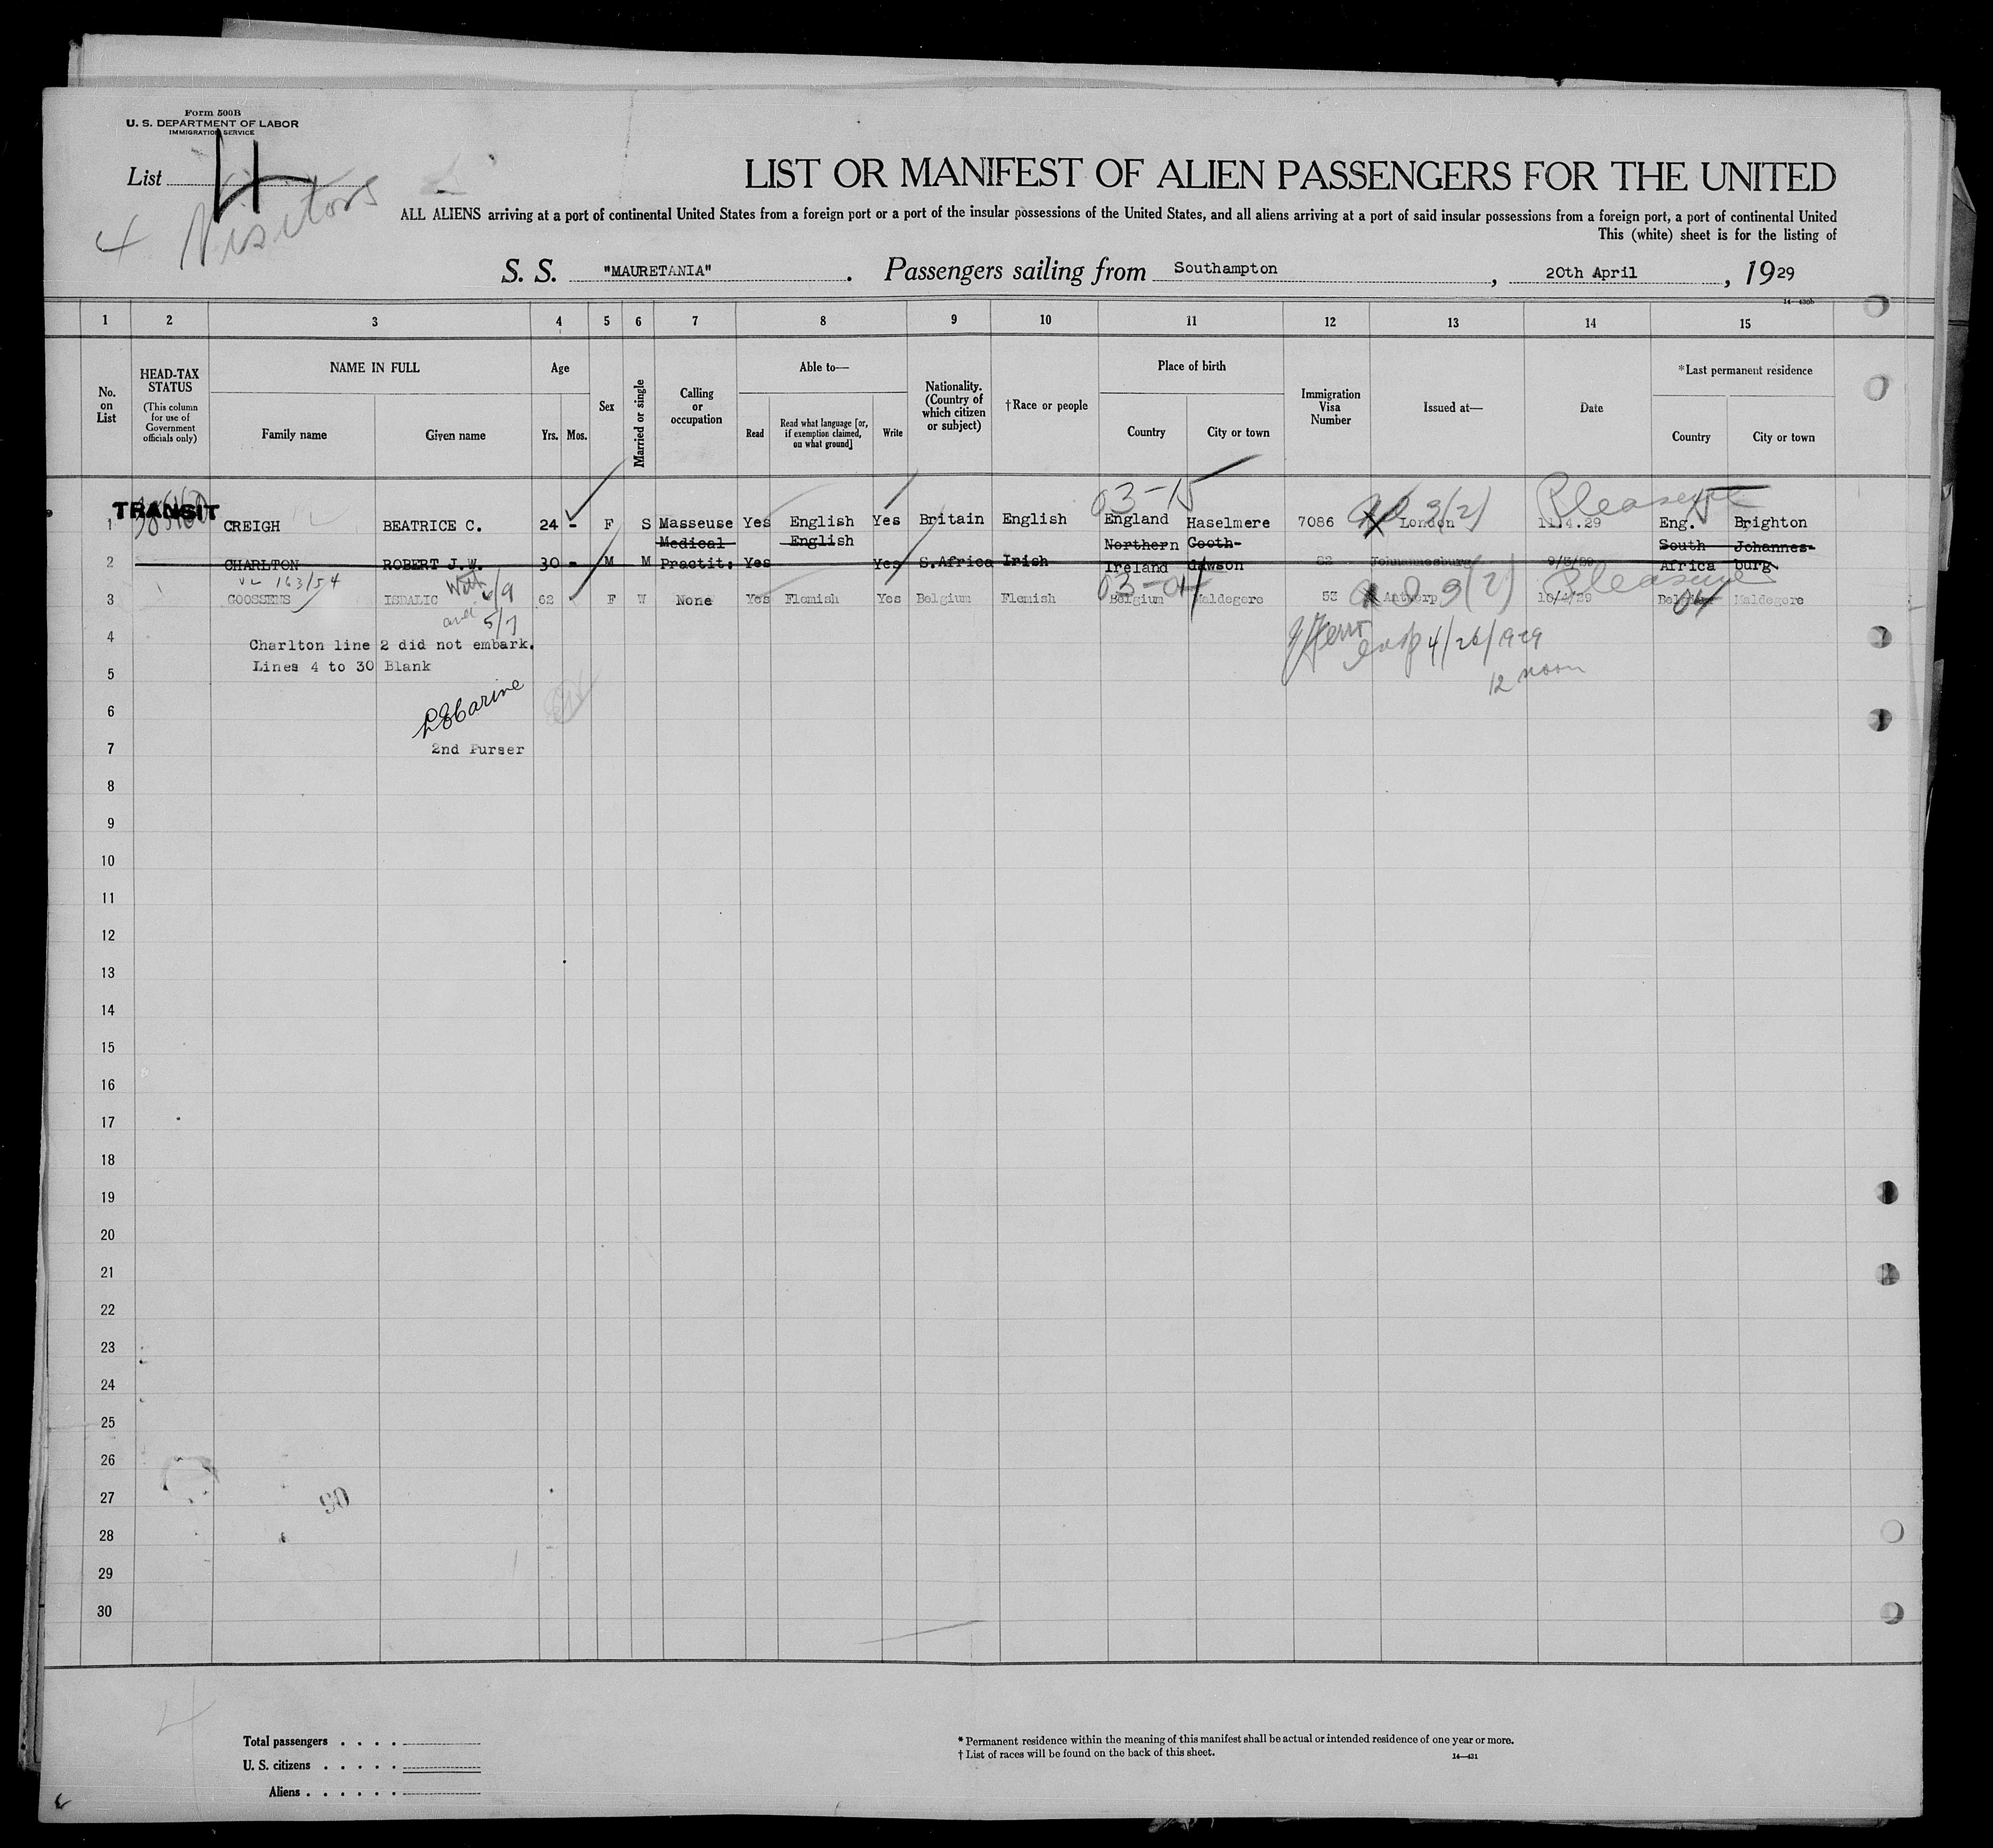 Form 500B
U. S. DEPARTMENT OF LABOR
IMMIGRATION SERVICE
List 4
4 Visitors
LIST OR MANIFEST OF ALIEN PASSENGERS FOR THE UNITED
ALL ALIENS arriving at a port of continental United States from a foreign port or a port of the insular possessions of the United States, and all aliens arriving at a port of said insular possessions from a foreign port, a port of continental United
This (white) sheet is for the listing of
S. S. "MAURETANIA". Passengers sailing from Southampton, 20th April, 1929
14—430b
1 2 3 4 5 6 7 8 9 10 11 12 13 14 15
No. on List
HEAD-TAX STATUS
(This column for use of Government officials only)
NAME IN FULL
Family name Given name
Age
Yrs. Mos.
Sex
Married or single
Calling or occupation
Able to—
Read
Read what language [or, if exemption claimed, on what ground]
Write
Nationality. (Country of which citizen or subject)
†Race or people
Place of birth
Country City or town
Immigration Visa Number
Issued at—
Date
*Last permanent residence
Country City or town
03-15
Pleasure
TRANSIT
1 CREIGH BEATRICE C. 24 - F S Masseuse Yes English Yes Britain English England Haselmere 7086 London 3(2) 11.4.29 Eng. Brighton
2 CHARLTON ROBERT J.W. 30 - M M Medical Practit: Yes English Yes S.Africa Irish Northern Ireland Cooth- dawson 82 Johannesburg 9/3/29 South Africa Johannes- burg
VL 163/54
03-04
Pleasure
3 GOOSSENS ISDALIC 62 F W None Yes Flemish Yes Belgium Flemish Belgium Maldegere 53 Antwerp 3(2) 10/4/29 Belgium 04 Maldegere
and 5/7
4 Charlton line 2 did not embark.
Lines 4 to 30 Blank
4/26/1929
12 noon
5
6
2nd Purser
7
8
9
10
11
12
13
14
15
16
17
18
19
20
21
22
23
24
25
26
27
90
28
29
30
4
Total passengers . . . .
U. S. citizens . . . . .
Aliens . . . . . .
* Permanent residence within the meaning of this manifest shall be actual or intended residence of one year or more.
† List of races will be found on the back of this sheet.
14—431